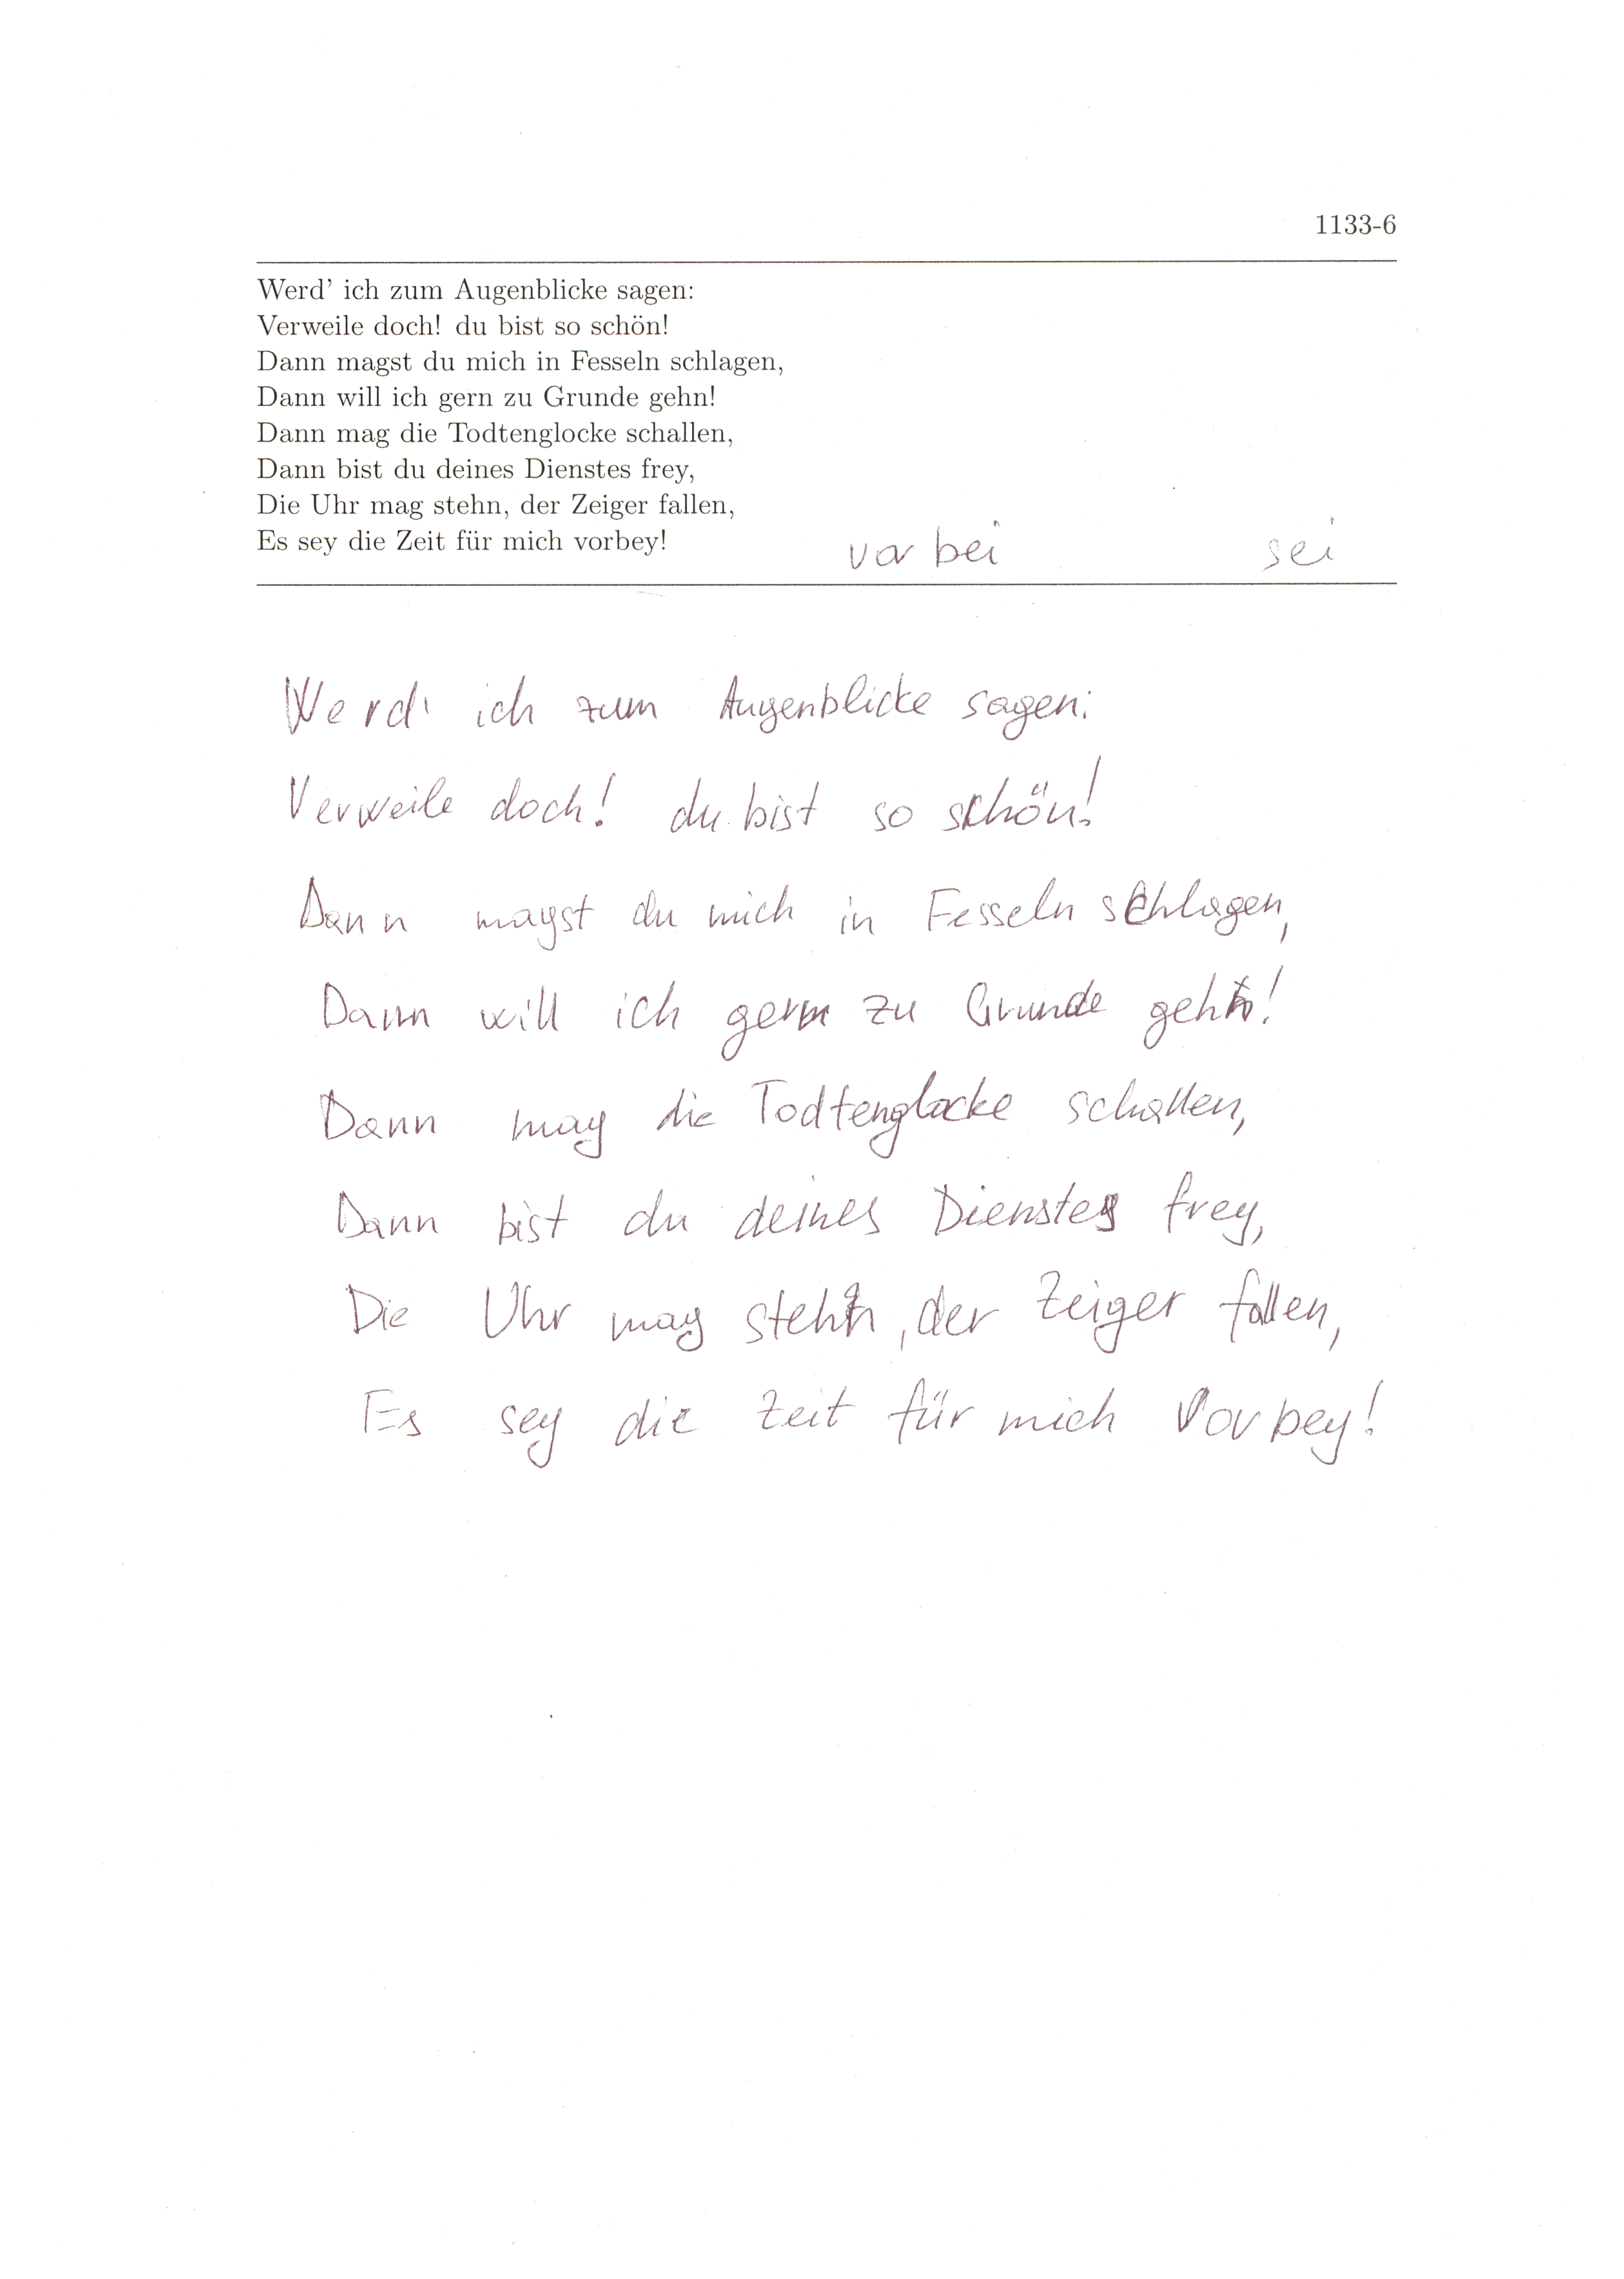 1133-6
Werd' ich zum Augenblicke sagen:
Verweile doch! du bist so schön!
Dann magst du mich in Fesseln schlagen,
Dann will ich gern zu Grunde gehn!
Dann mag die Todtenglocke schallen,
Dann bist du deines Dienstes frey,
Die Uhr mag stehn, der Zeiger fallen,
Es sey die Zeit für mich vorbey!
vorbei sei
Werd' ich zum Augenblicke sagen:
Verweile doch! du bist so schön!
Dann magst du mich in Fesseln schlagen,
Dann will ich gern zu Grunde gehn!
Dann mag die Todtenglocke schallen,
Dann bist du deines Dienstes frey,
Die Uhr mag stehn, der Zeiger fallen,
Es sey die Zeit für mich Vorbey!